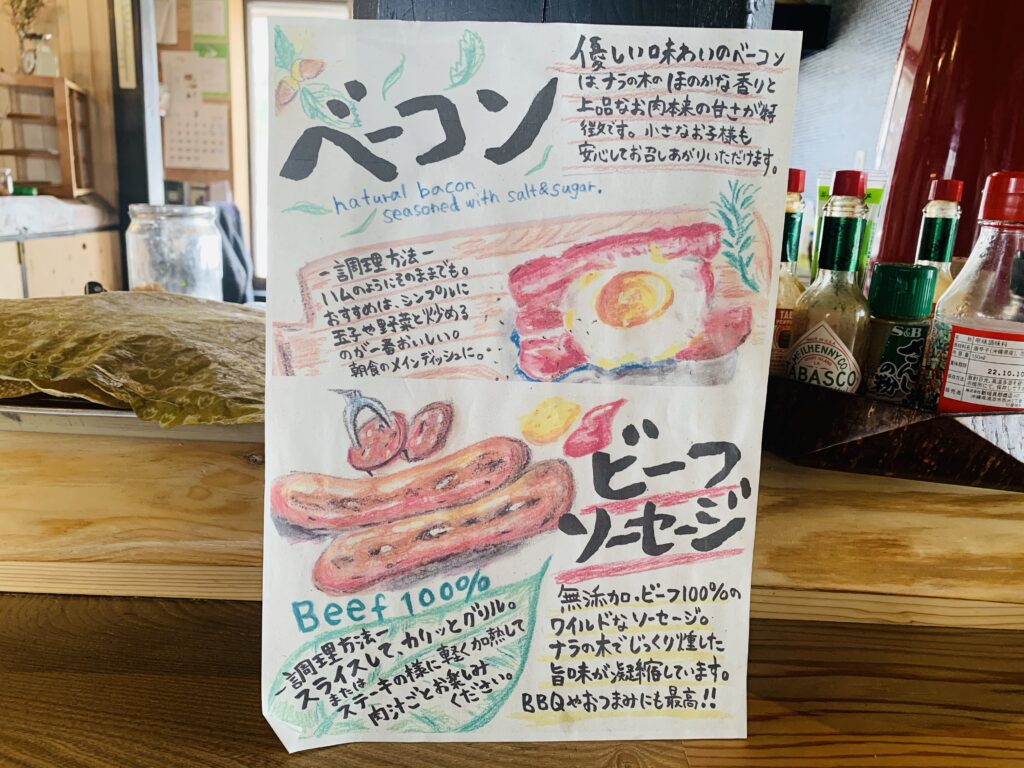 ベーコン
natural bacon
seasoned with salt&sugar.
優しい味わいのベーコン
は、ナラの木のほのかな香りと
上品なお肉本来の甘さが特
徴です。小さなお子様も
安心してお召しあがりいただけます。
ー調理方法ー
ハムのようにそのままでも。
おすすめは、シンプルに
玉子や野菜と炒める
のが一番おいしい。
朝食のメインディッシュに。
ビーフ
ソーセージ
Beef 100%
ー調理方法ー
スライスして、カリッとグリル。
または
ステーキの様に軽く加熱して
肉汁ごとお楽しみ
ください。
無添加・ビーフ100%の
ワイルドなソーセージ。
ナラの木でじっくり燻した
旨味が凝縮しています。
BBQやおつまみにも最高!!
McILHENNY CO.
TABASCO
S&B
22.10.10